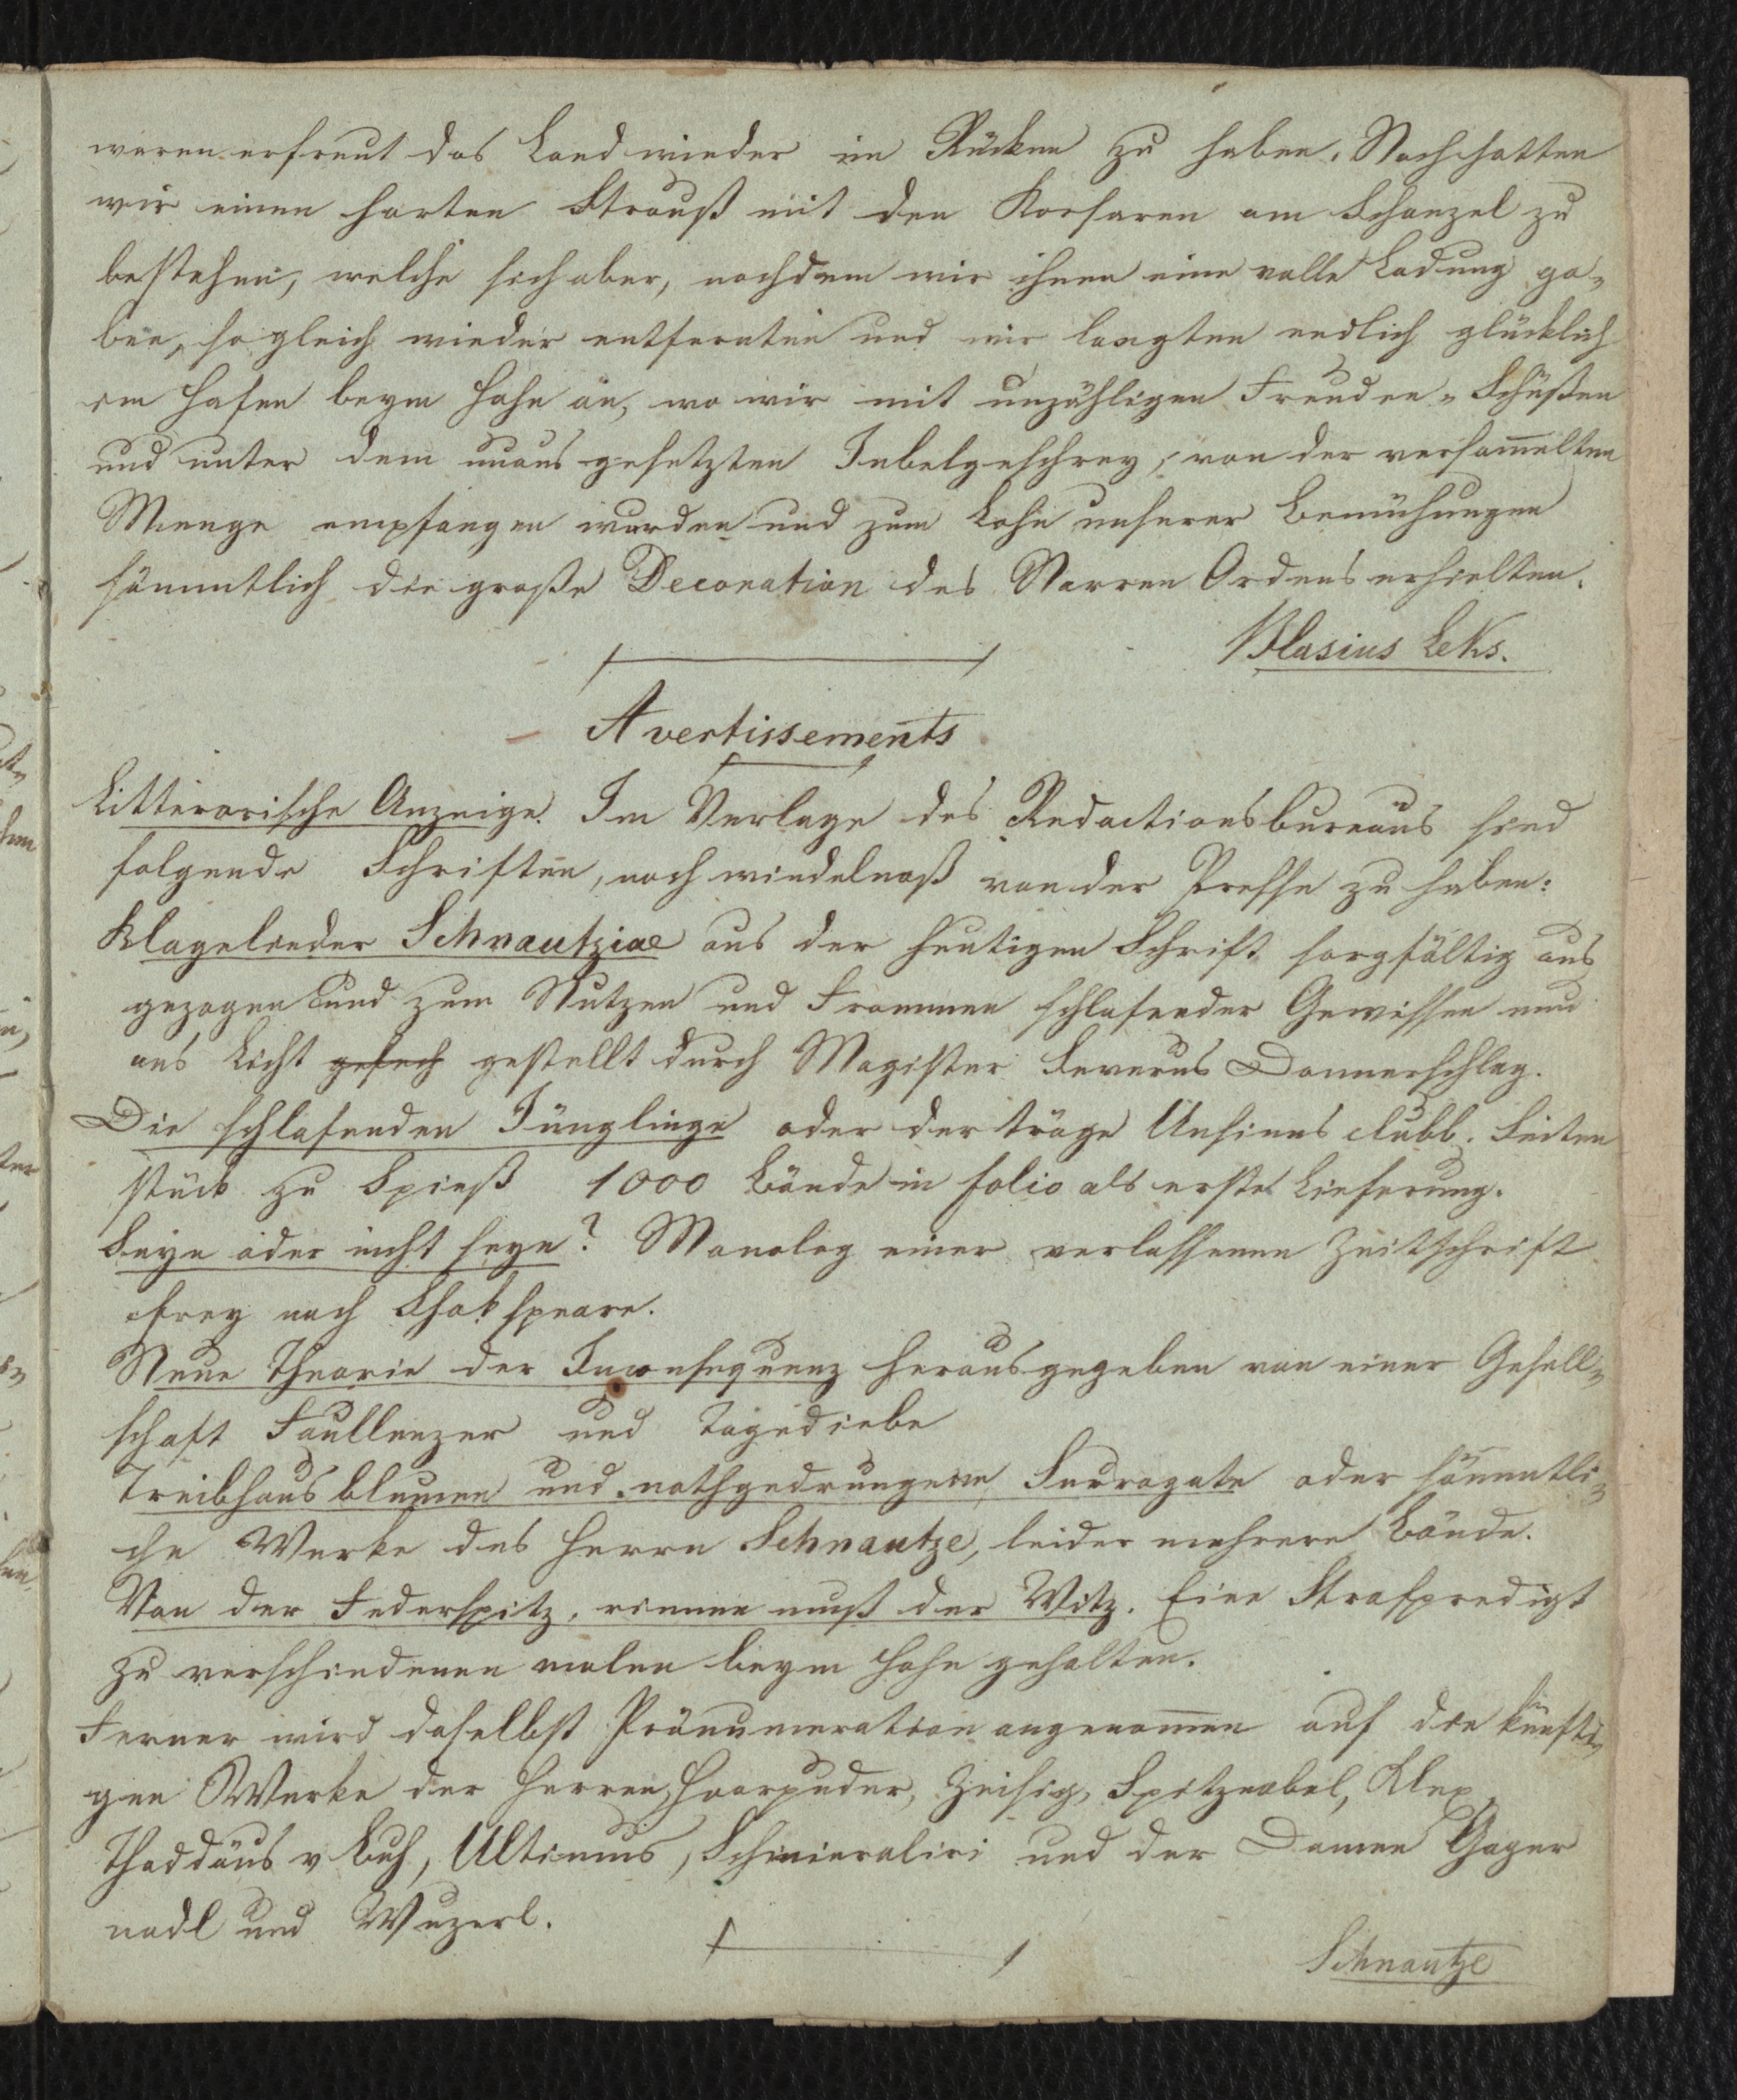 waren erfreut das Land wieder im Rücken zu haben. Noch hatten
wir einen harten Strauß mit den Korsaren am Schanzel zu
bestehen, welche sich aber, nachdem wir ihnen eine volle Ladung ga„
ben, sogleich wieder entfernten und wir langten endlich glücklich
im Hafen beym Hahn an, wo wir mit unzähligen Freuden„Schüßen
und unter dem unausgesetzten Jubelgeschrey, von der versam̄elten
Menge empfangen wurden und zum Lohn unserer Bemühungen
sämmtlich die große Decoration des Narren Ordens erhielten.
Blasius Leks.
Avertissements
Litterarische Anzeige. Im Verlage des Redactionsbureaus sind
folgende Schriften, noch windelnaß von der Presse zu haben:
Klagelieder Schnautziae aus der heutigen Schrift sorgfältig aus
gezogen und zum Nutzen und Frommen schlafender Gewissen nun
ans Licht gesech gestellt durch Magister Severus Donnerschlag.
Die schlafenden Jünglinge oder der träge Unsinns clubb. Seiten
stück zu Spieß 1000 Bände in folio als erste Lieferung.
Seyn oder nicht seyn? Monolog einer verlassenen Zeitschrift
frey nach Shakspeare.
Neue Theorie der Inconsequenz herausgegeben von einer Gesell„
schaft Faullenzer und Tagediebe
Treibhausblumen und nothgedrungene Surrogate oder sämmtli„
che Werke des Herrn Schnautze, leider mehrere Bände.
Von der Federspitz, rinnen muß der Witz. Eine Strafpredigt
zu verschiedenen malen beym Hahn gehalten.
Ferner wird daselbst Pränumeration angenom̄en auf die künfti„
gen Werke der Herren Haarpuder, Zeisig, Spitznabel, Klex,
Thaddäus v Buh, Ultimus, Schmieraliri und der Damen Gager
nadl und Wuzerl.
Schnautze